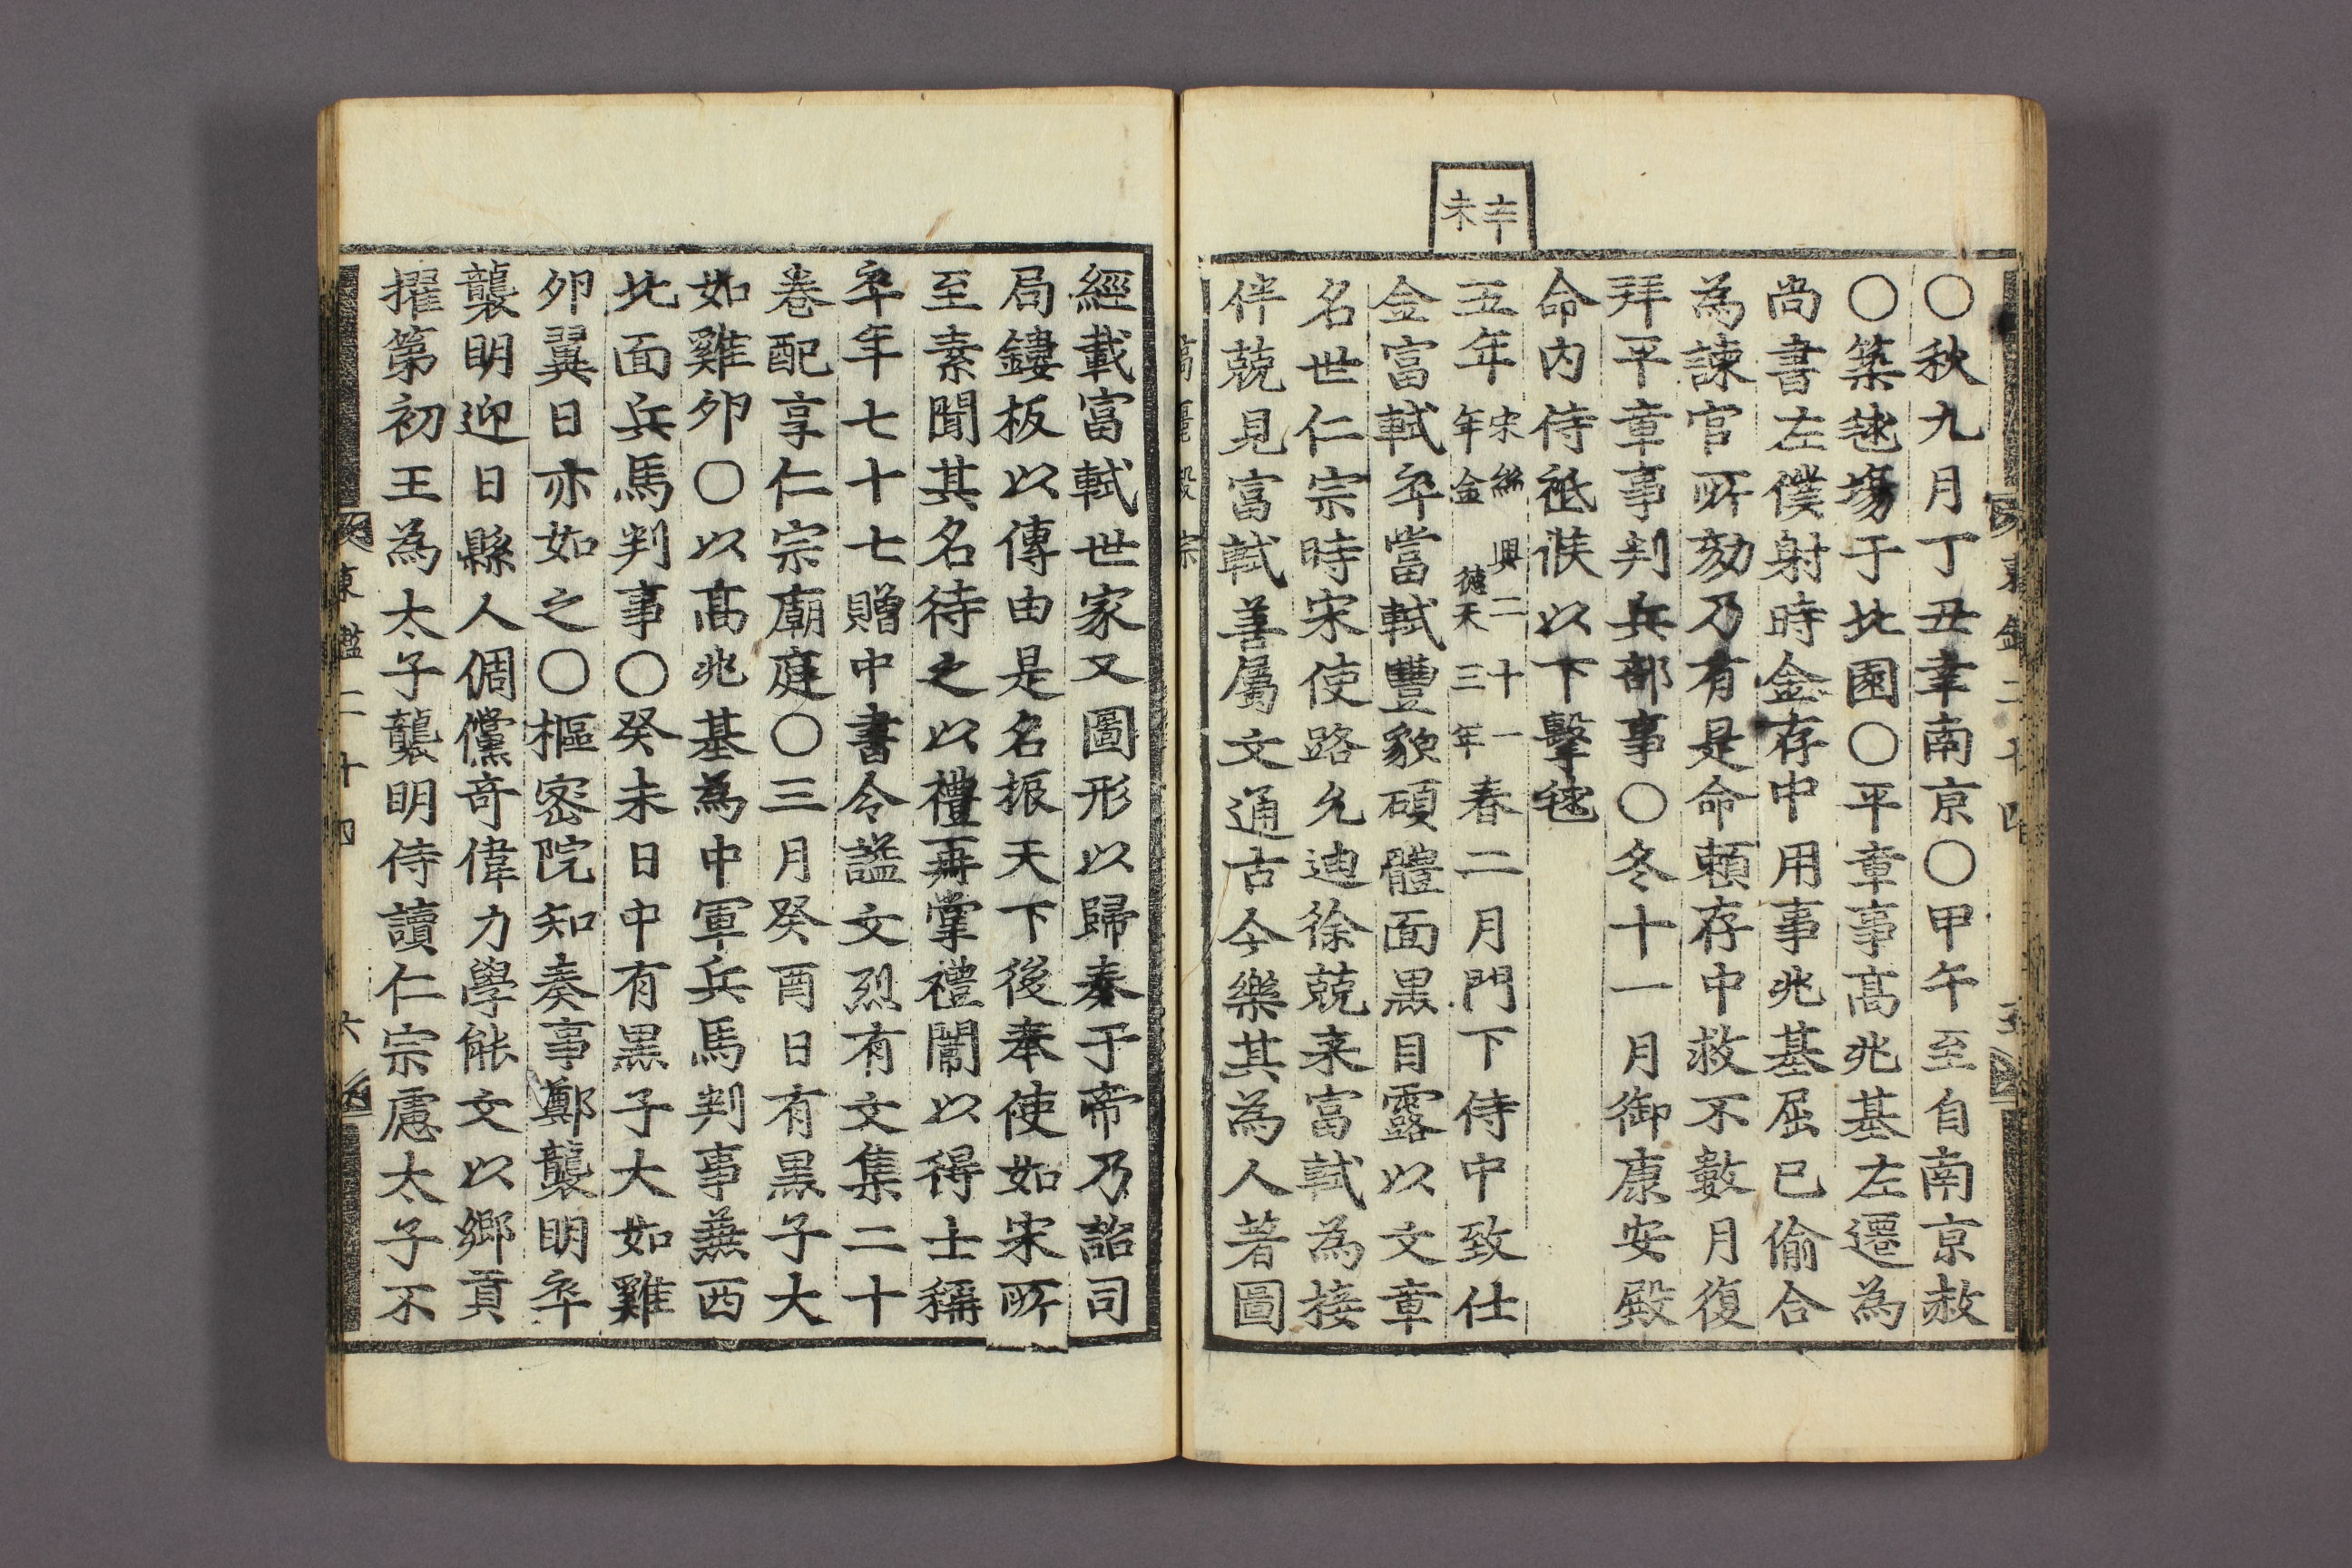 辛未
〇秋九月丁丑幸南京〇甲午至自南京赦
〇築毬場于北園〇平章事高兆基左遷為
尚書左僕射時金存中用事兆基屈已偷合
為諫官所劾乃有是命賴存中救不數月復
拜平章事判兵部事〇冬十一月御康安殿
命內侍祗候以下擊毬
五年宋紹興二十一年金天德三年春二月門下侍中致仕
金富軾卒富軾豐貌碩體面黑目露以文章
名世仁宗時宋使路允迪徐兢来富軾為接
伴兢見富軾善屬文通古今樂其為人著圖
經載富軾世家又圖形以歸奏于帝乃詔司
局鏤板以傳由是名振天下後奉使如宋所
至素聞其名待之以禮再掌禮闈以得士稱
卒年七十七贈中書令諡文烈有文集二十
卷配享仁宗廟庭〇三月癸酉日有黑子大
如雞卵〇以高兆基為中軍兵馬判事兼西
北面兵馬判事〇癸未日中有黑子大如雞
卵翼日亦如之〇樞密院知奏事鄭襲明卒
襲明迎日縣人倜儻奇偉力學能文以鄉貢
擢第初王為太子襲明侍讀仁宗慮太子不
東鑑二十四
六